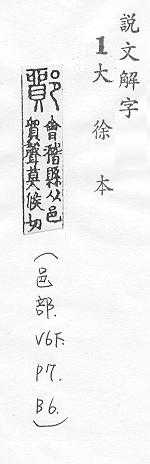 說文解字
1大徐本
鄮
會稽縣从邑
貿聲莫候切
(邑部.V6下.P7.B6.)